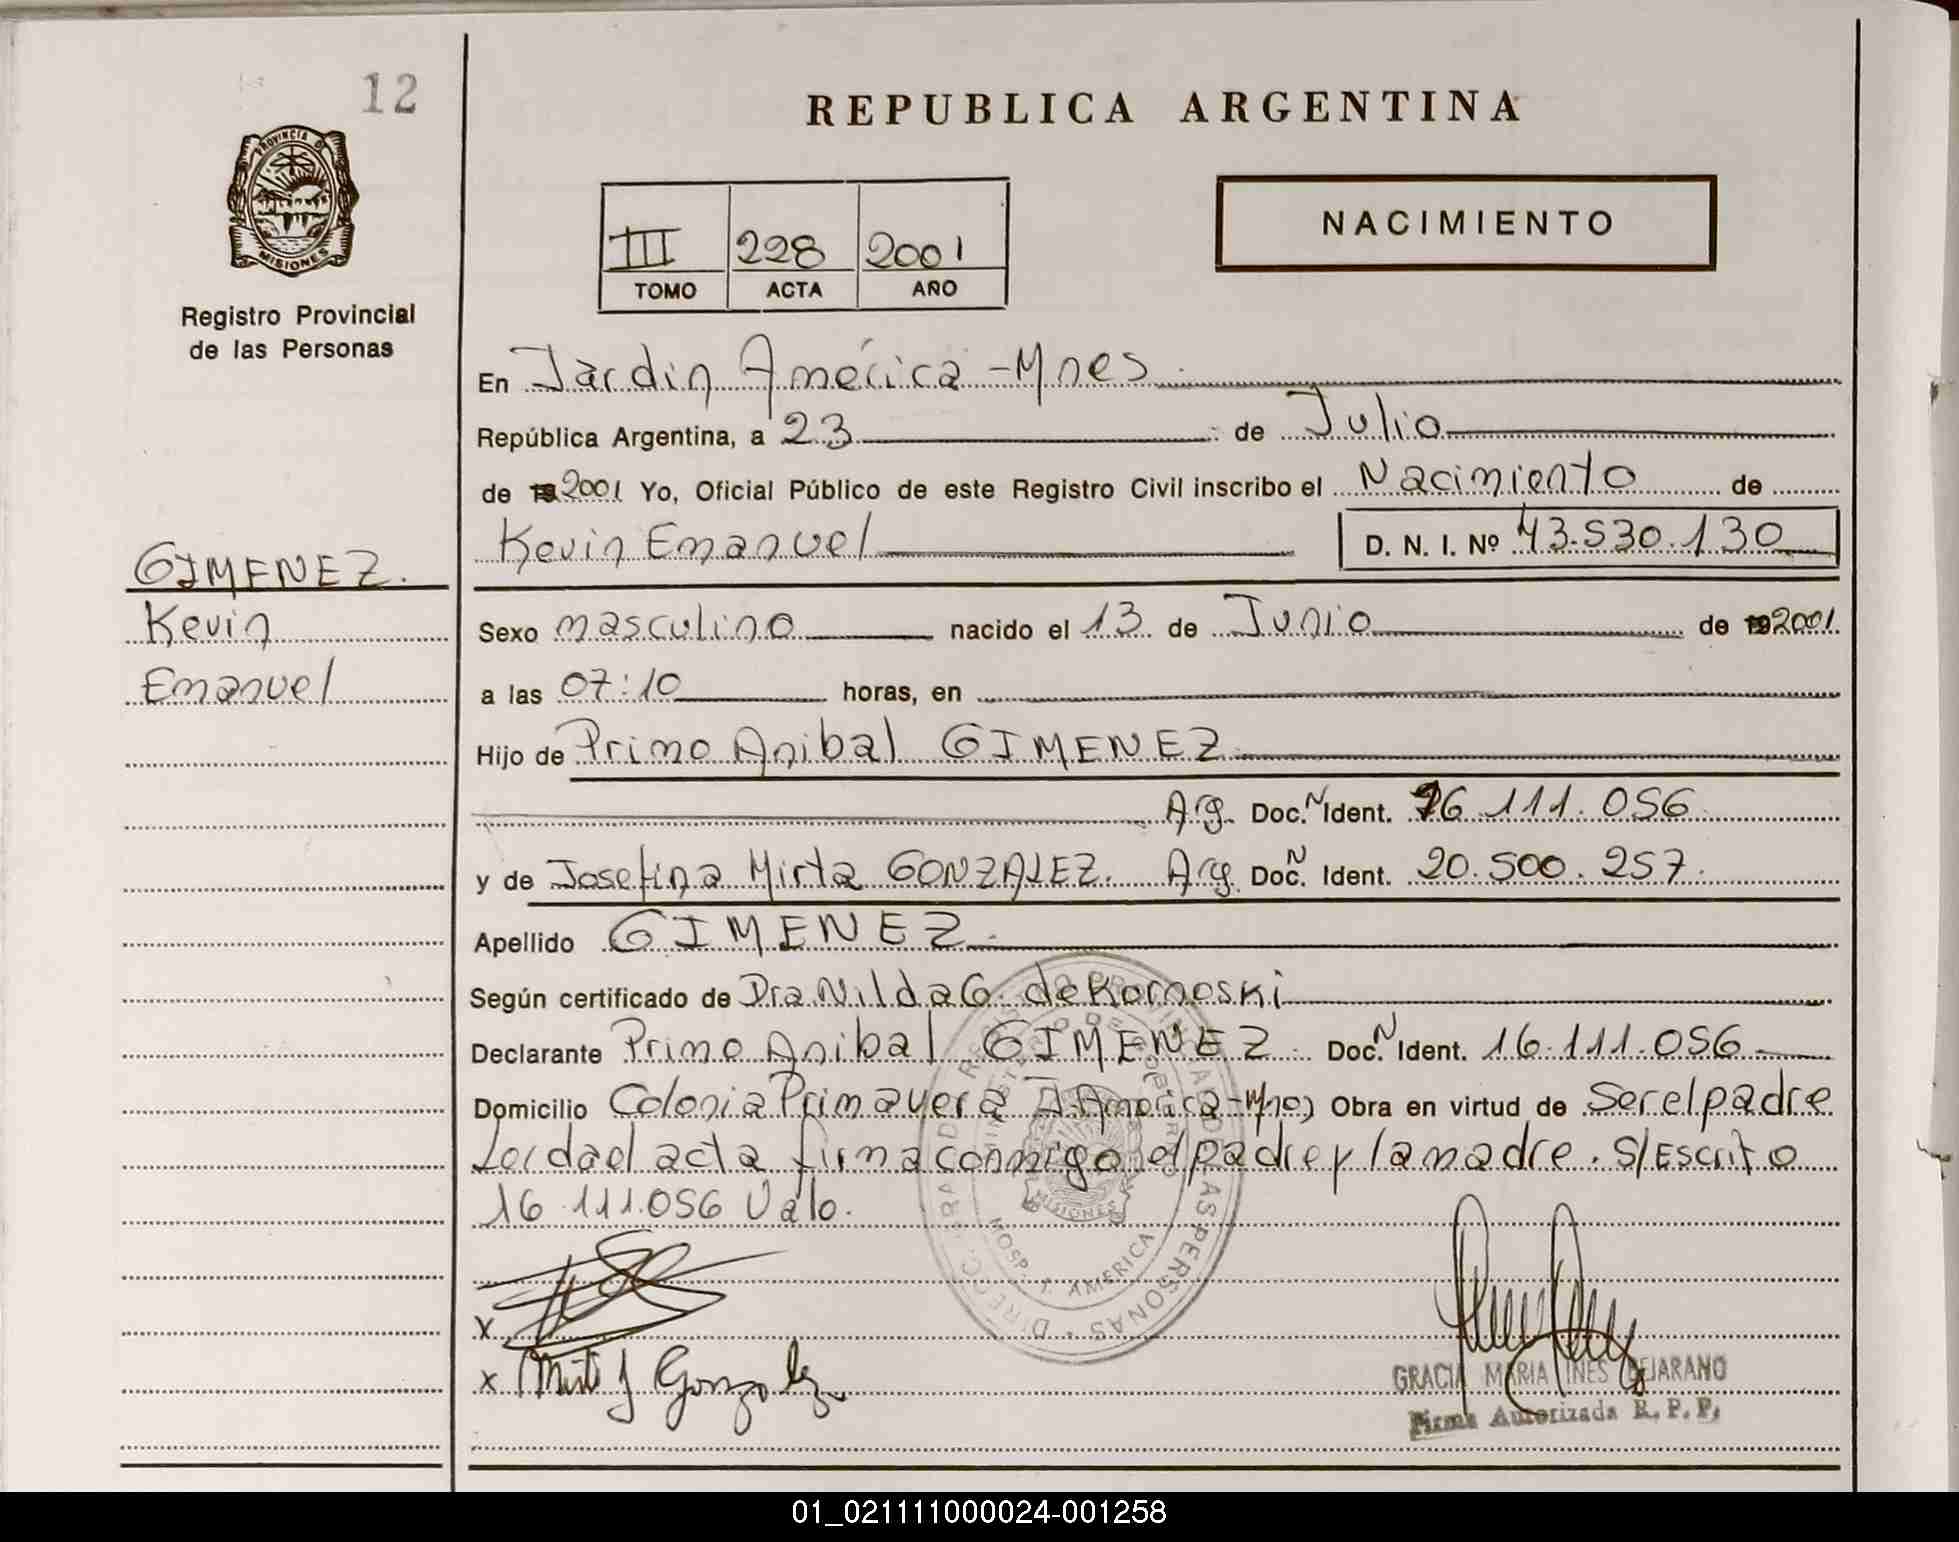 12
REPUBLICA ARGENTINA
PROVINCIA DE
MISIONES
Registro Provincial
de las Personas
III 228 2001
TOMO ACTA AÑO
NACIMIENTO
En Jardin América - Mnes
República Argentina, a 23 de Julio
de 19 2001 Yo, Oficial Público de este Registro Civil inscribo el Nacimiento de
Kevin Emanuel D. N. I. Nº 43.530.130
GIMENEZ.
Kevin
Emanuel
Sexo masculino nacido el 13 de Junio de 19 2001
a las 07:10 horas, en
Hijo de Primo Anibal GIMENEZ
Arg. Doc. N Ident. 16.111.056
y de Josefina Mirta GONZALEZ. Arg. Doc. N Ident. 20.500.257.
Apellido GIMENEZ
Según certificado de Dra Nilda G. de Kornoski
Declarante Primo Anibal GIMENEZ Doc. N Ident. 16.111.056
Domicilio Colonia Primavera J. América - Mnes) Obra en virtud de Ser el padre
Leida el acta firma conmigo el padre y la madre. S/Escrito
16.111.056 Vale.
DIRECC. GRAL. DE REGISTRO PROVINCIAL DE LAS PERSONAS
MINISTERIO DE GOBIERNO
MISIONES
HOSP. J. AMERICA
x
x Mirta J Gonzalez
GRACIA MARIA INES BEJARANO
Firma Autorizada R. P. P.
01_021111000024-001258